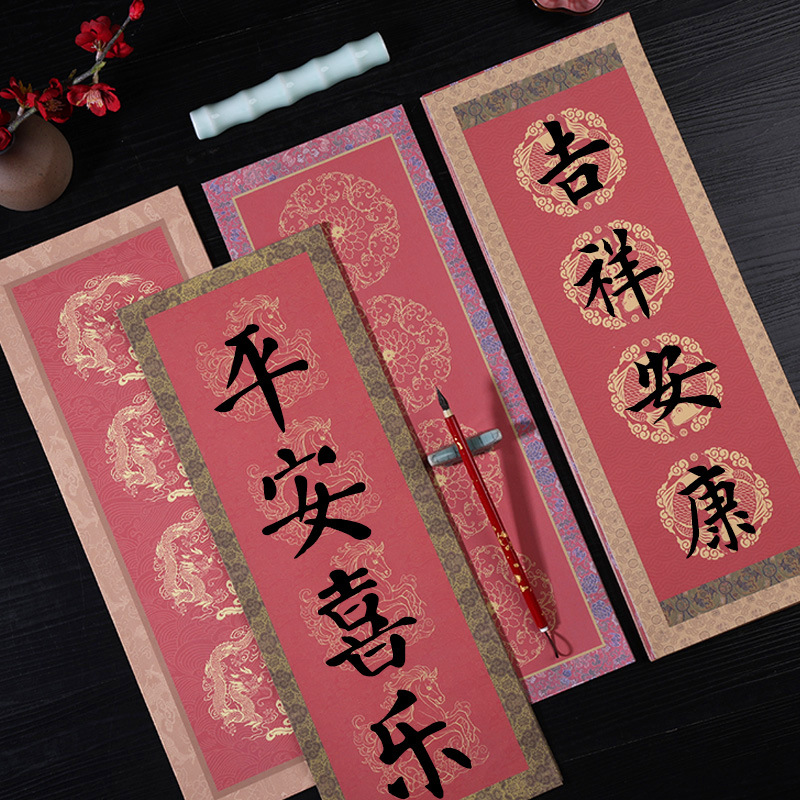 平安喜乐
吉祥安康